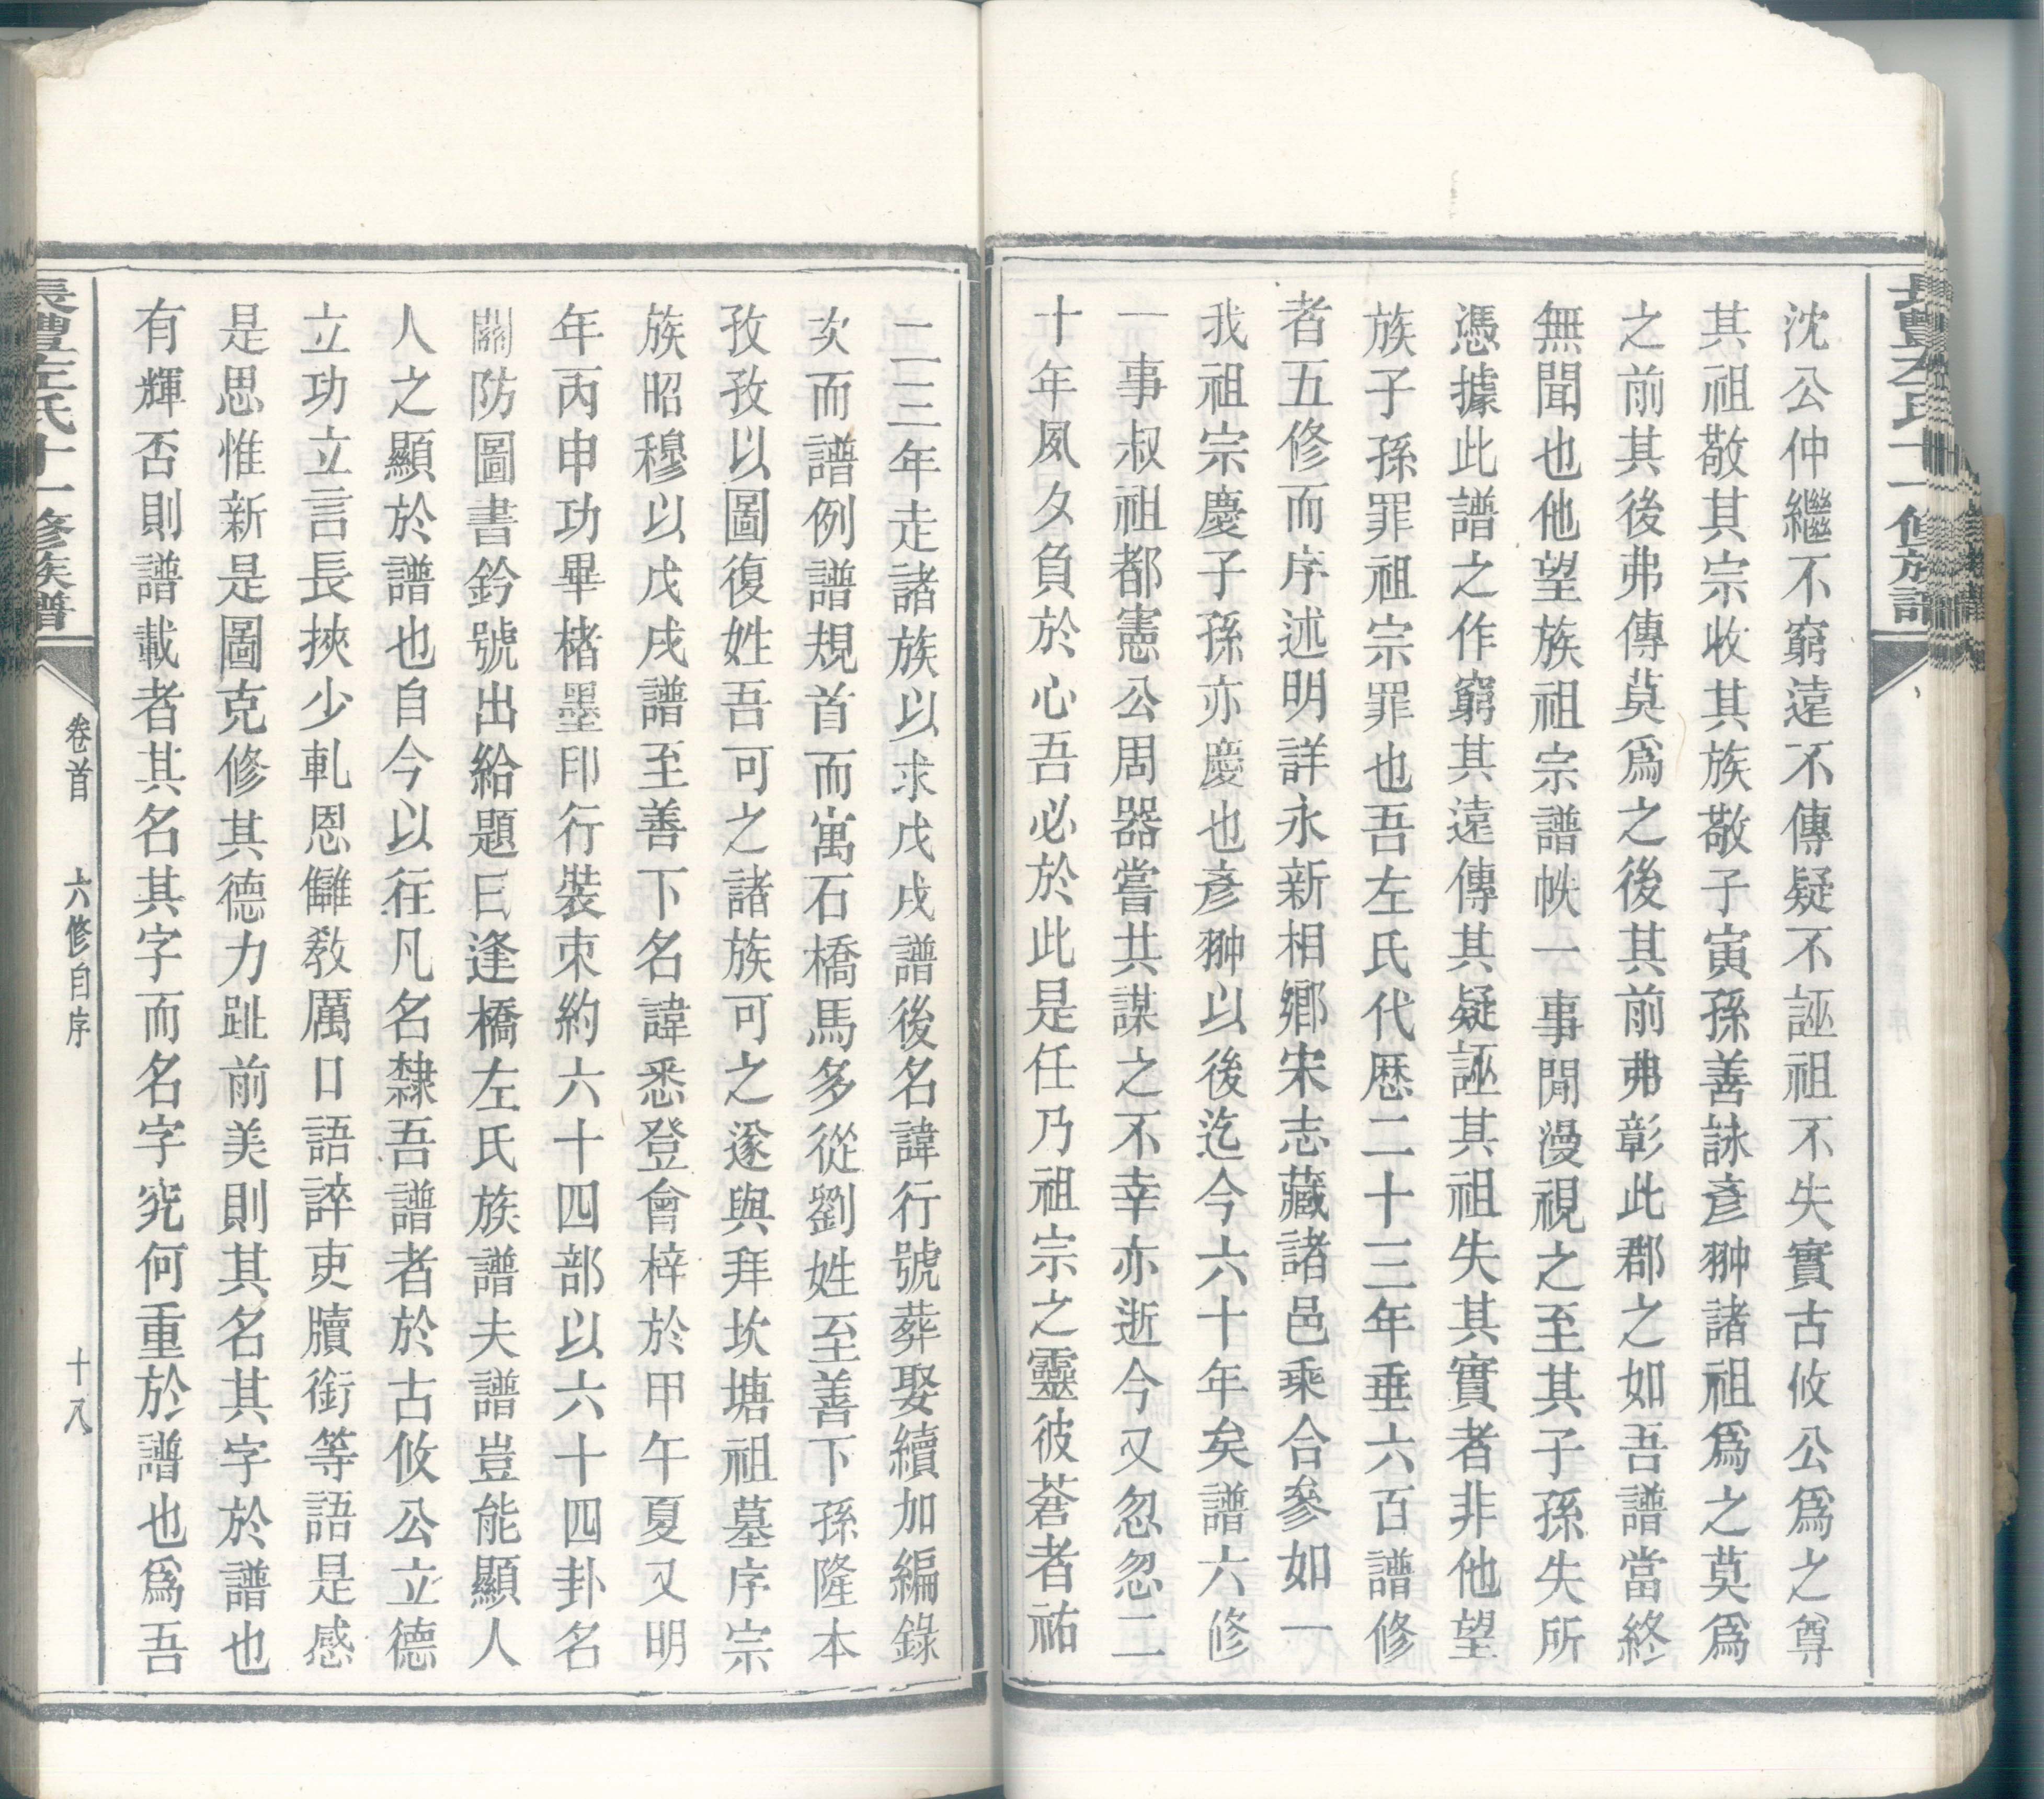 長豐左氏十一修族譜
沈公仲繼不窮遠不傳疑不誣祖不失實古攸公爲之尊
其祖敬其宗收其族敬子寅孫善詠彥翀諸祖爲之莫爲
之前其後弗傳莫爲之後其前弗彰此郡之如吾譜當終
無聞也他望族祖宗譜帙一事閒漫視之至其子孫失所
憑據此譜之作窮其遠傳其疑誣其祖失其實者非他望
族子孫罪祖宗罪也吾左氏代歷二十三年垂六百譜修
者五修而序述明詳永新相鄉宋志藏諸邑乘合參如一
我祖宗慶子孫亦慶也彥翀以後迄今六十年矣譜六修
一事叔祖都憲公周器嘗共謀之不幸亦逝今又忽忽二
十年夙夕負於心吾必於此是任乃祖宗之靈彼蒼者祐
二三年走諸族以求戊戌譜後名諱行號葬娶續加編錄
次而譜例譜規首而寓石橋馬多從劉姓至善下孫隆本
孜孜以圖復姓吾可之諸族可之遂與拜坎塘祖墓序宗
族昭穆以戊戌譜至善下名諱悉登會梓於甲午夏又明
年丙申功畢楮墨印行裝束約六十四部以六十四卦名
關防圖書鈐號出給題曰逢橋左氏族譜夫譜豈能顯人
人之顯於譜也自今以往凡名隸吾譜者於古攸公立德
立功立言長挾少軋恩讎敎厲口語誶吏牘銜等語是感
是思惟新是圖克修其德力趾前美則其名其字於譜也
有輝否則譜載者其名其字而名字究何重於譜也爲吾
長豐左氏十一修族譜
卷首 六修自序 十八